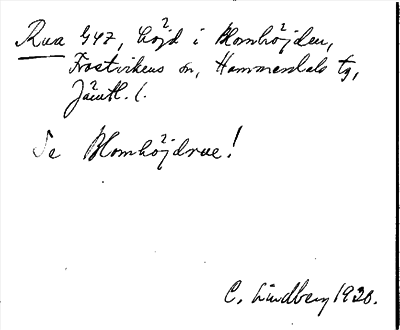 Rua 947, höjd i Blomhöjden,
Frostvikens sn, Hammerdals tg,
Jämtl. l.
Se Blomhöjdrue!
C. Lindberg 1920.